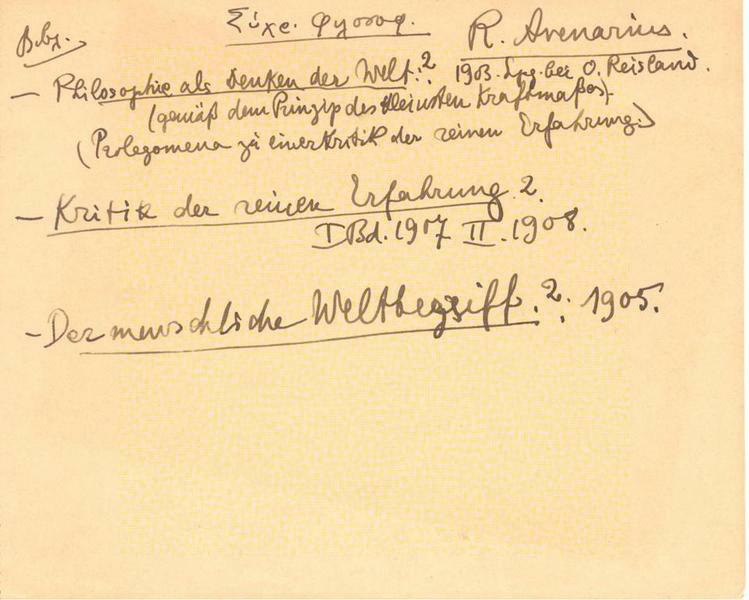 Βιβλ. Σύχρ. Φιλοσοφ. R. Avenarius.
— Philosophie als Denken der Welt.² 1903. Lpg. bei O. Reisland.
(gemäß dem Prinzip des kleinsten Kraftmaßes).
(Prolegomena zu einer Kritik der reinen Erfahrung.)
— Kritik der reinen Erfahrung 2.
I Bd. 1907 II. 1908.
— Der menschliche Weltbegriff. 2. 1905.